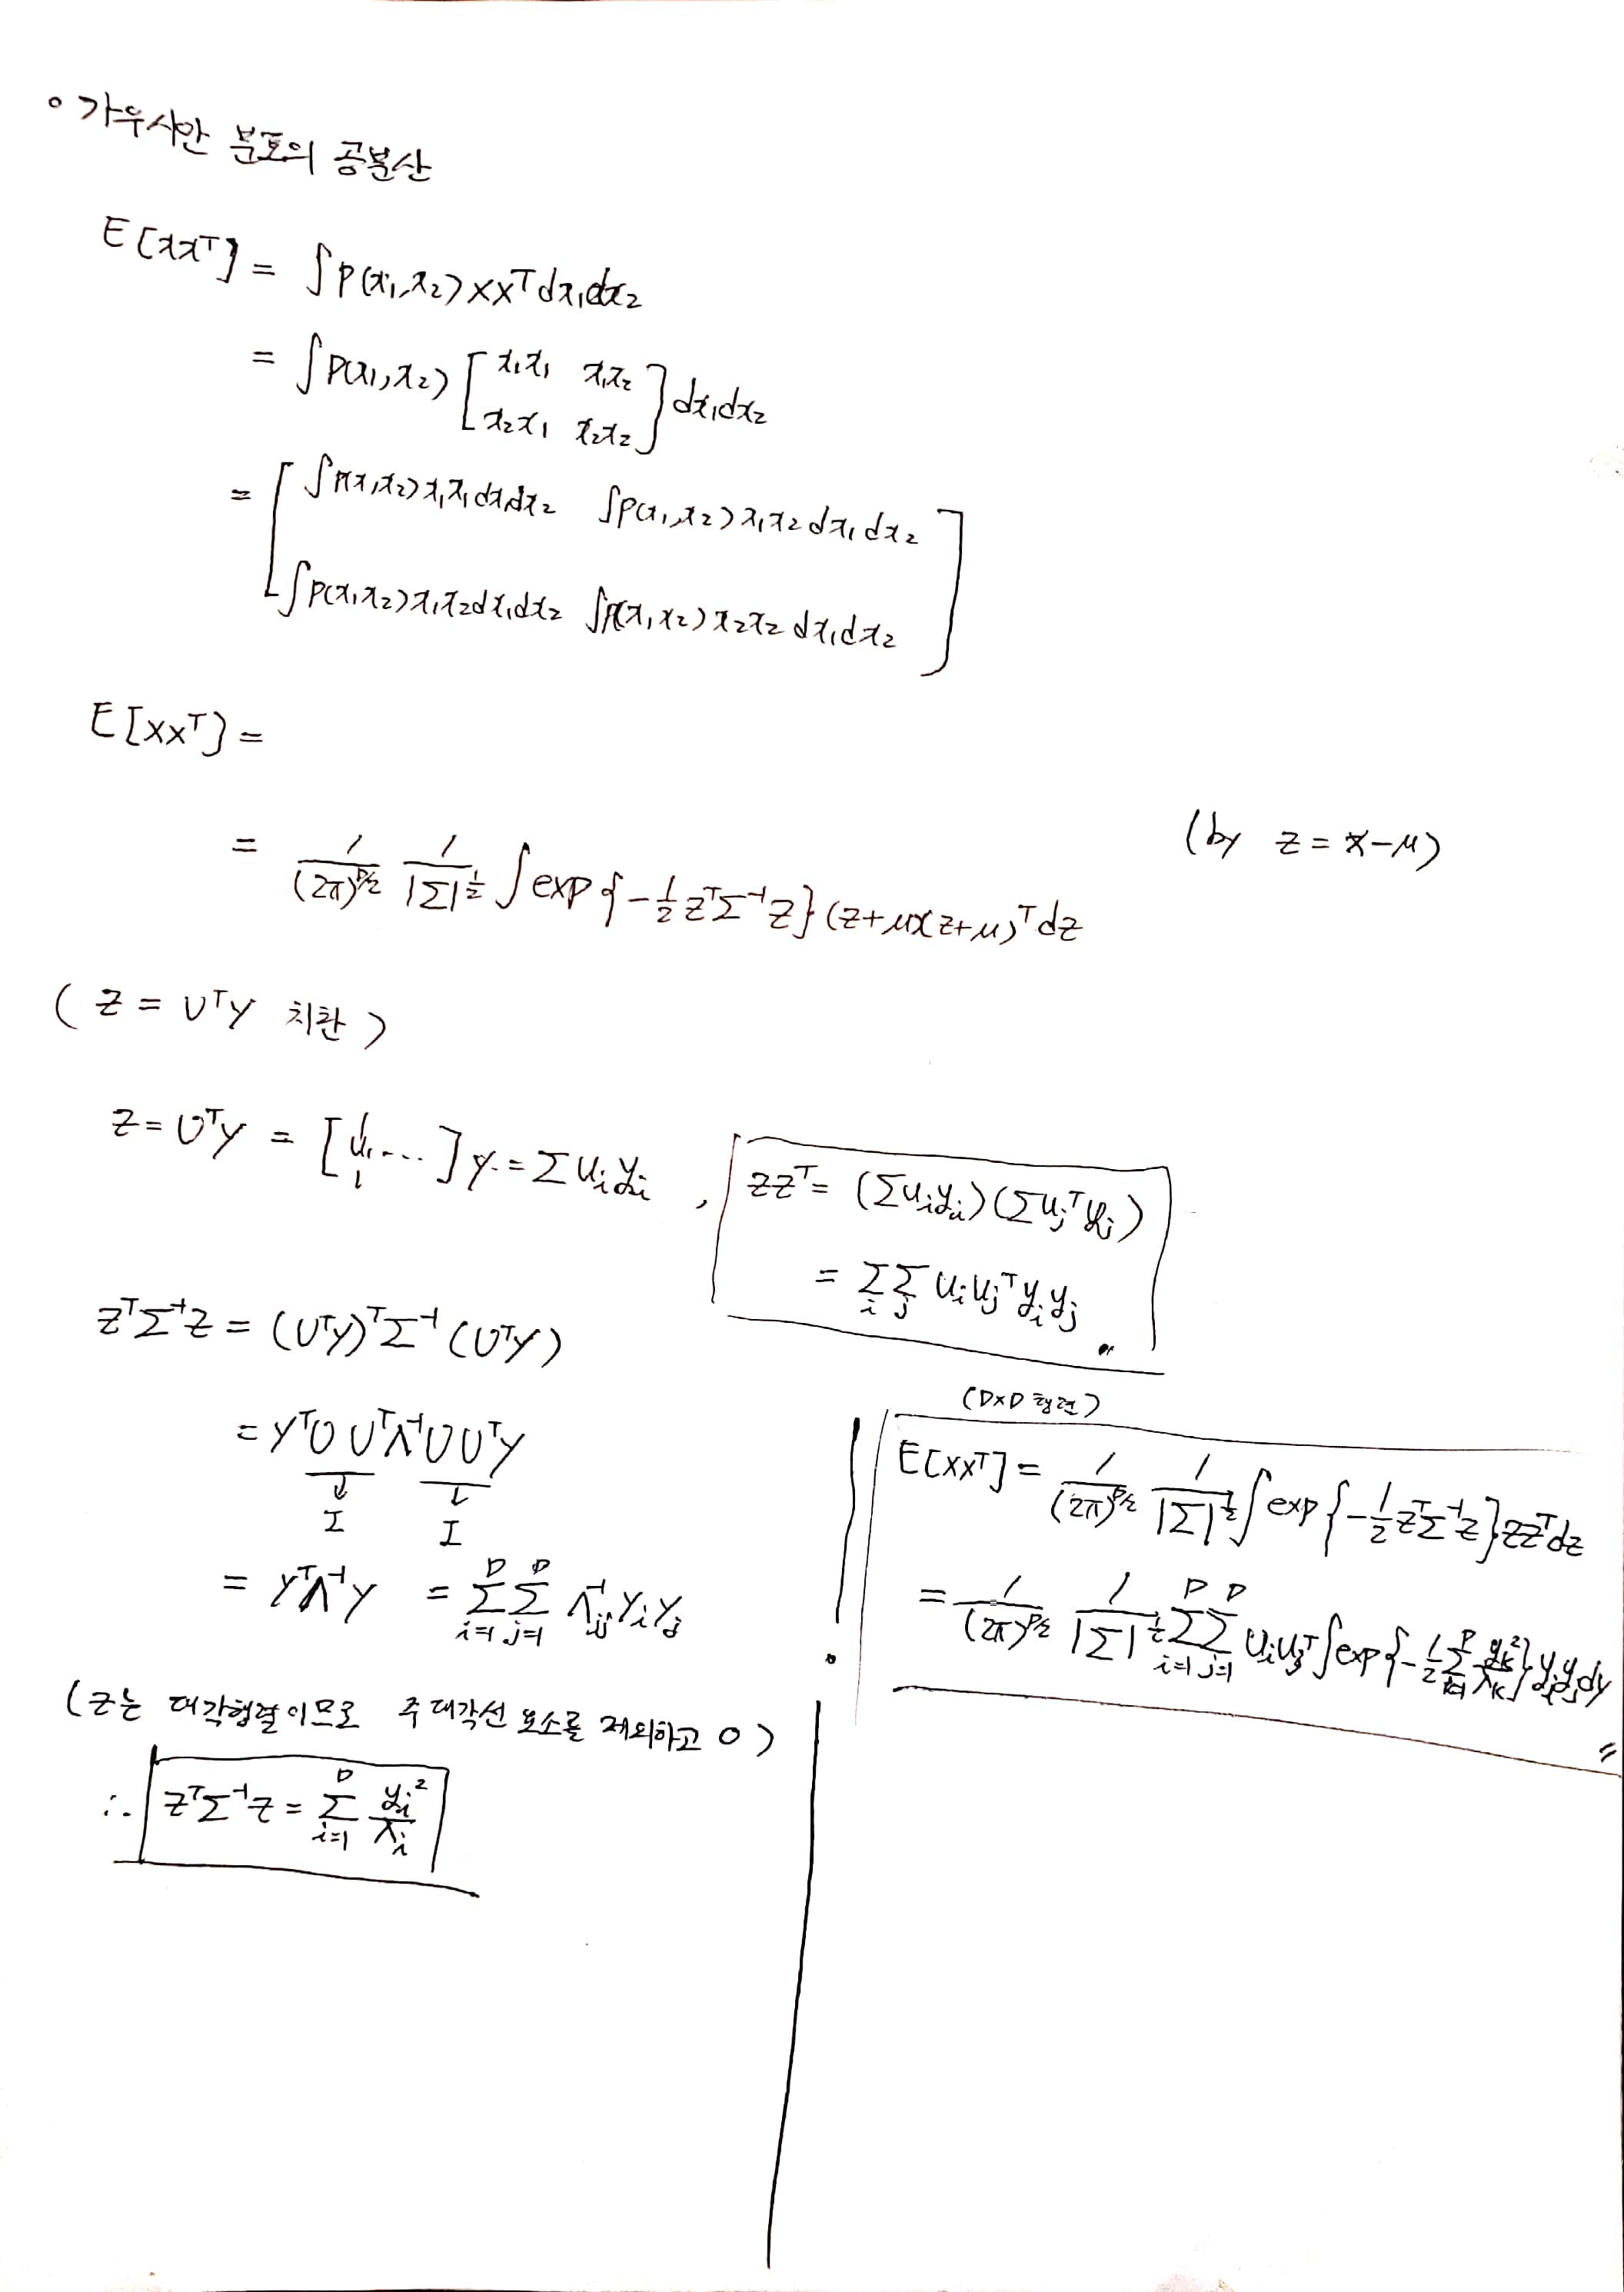 ◦ 가우시안 분포의 공분산
E[xxᵀ] = ∫p(x₁,x₂)xxᵀdx₁dx₂
= ∫p(x₁,x₂)[x₁x₁ x₁x₂
x₂x₁ x₂x₂]dx₁dx₂
= [∫p(x₁,x₂)x₁x₁dx₁dx₂ ∫p(x₁,x₂)x₁x₂dx₁dx₂
∫p(x₁x₂)x₁x₂dx₁dx₂ ∫p(x₁,x₂)x₂x₂dx₁dx₂]
E[xxᵀ] =
(by z = x-μ)
= 1/(2π)^{D/2} 1/|Σ|^{1/2} ∫exp{-1/2 zᵀΣ⁻¹z}(z+μ)(z+μ)ᵀdz
(z = Uᵀy 치환)
z = Uᵀy = [u₁ ...]y = Σuᵢyᵢ ,
zzᵀ = (Σuᵢyᵢ)(Σuⱼᵀyⱼ)
= Σᵢ Σⱼ uᵢuⱼᵀyᵢyⱼ
(D×D 행렬)
zᵀΣ⁻¹z = (Uᵀy)ᵀΣ⁻¹(Uᵀy)
= yᵀU UᵀΛ⁻¹U Uᵀy
↓ ↓
I I
= yᵀΛ⁻¹y = Σ_{i=1}^{D} Σ_{j=1}^{D} Λ⁻¹ᵢⱼ yᵢyⱼ
(z는 대각행렬이므로 주대각선 요소를 제외하고 0)
∴ zᵀΣ⁻¹z = Σ_{i=1}^{D} yᵢ²/λᵢ
E[xxᵀ] = 1/(2π)^{D/2} 1/|Σ|^{1/2} ∫exp{-1/2 zᵀΣ⁻¹z}zzᵀdz
= 1/(2π)^{D/2} 1/|Σ|^{1/2} Σ_{i=1}^{D} Σ_{j=1}^{D} uᵢuⱼᵀ∫exp{-1/2 Σ_{k=1}^{D} yₖ²/λₖ}yᵢyⱼdy